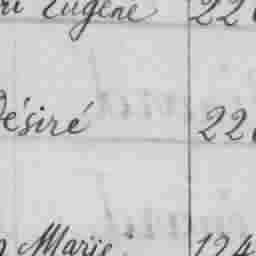 Eugène 22
Désiré 22
Marie 124